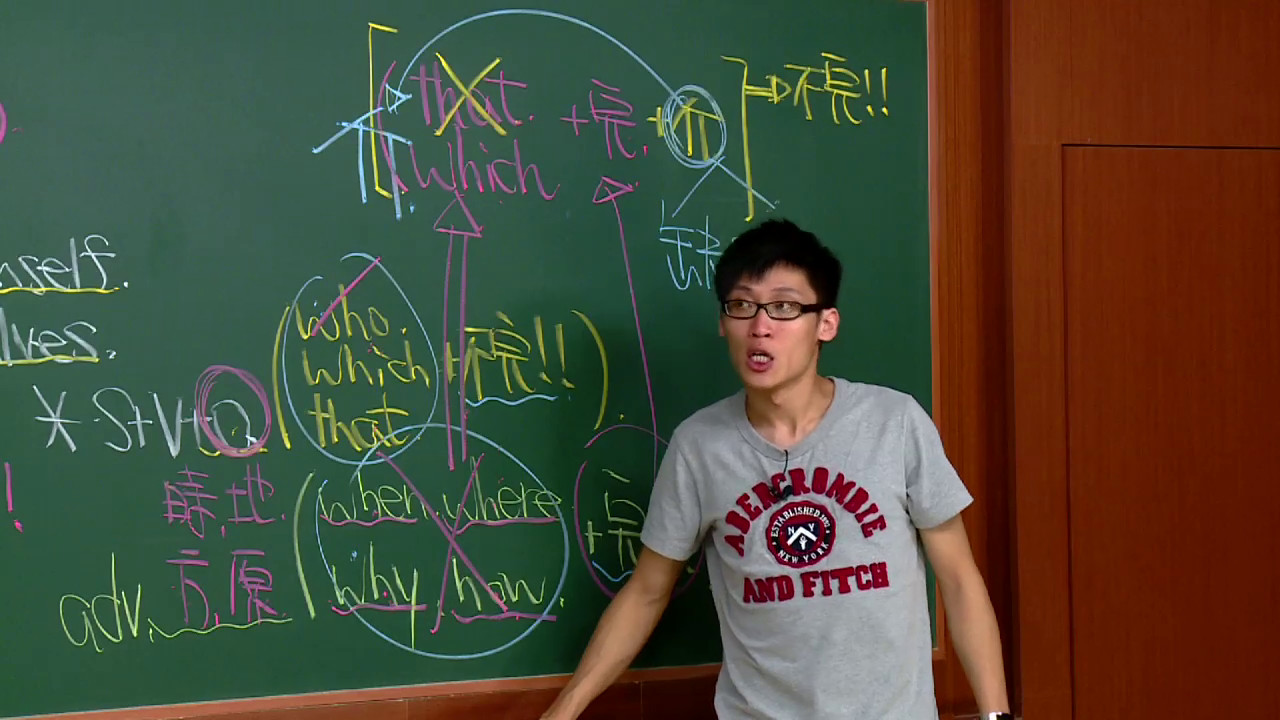 that + 完. + 介 ⇒ 不完!!
介 which
self.
lves.
who.
which + 不完!!
that
* S+V+O
when, where
時, 地. + 完
why, how.
adv. 方, 原
ABERCROMBIE
ESTABLISHED 1892
NY
NEW YORK
AND FITCH